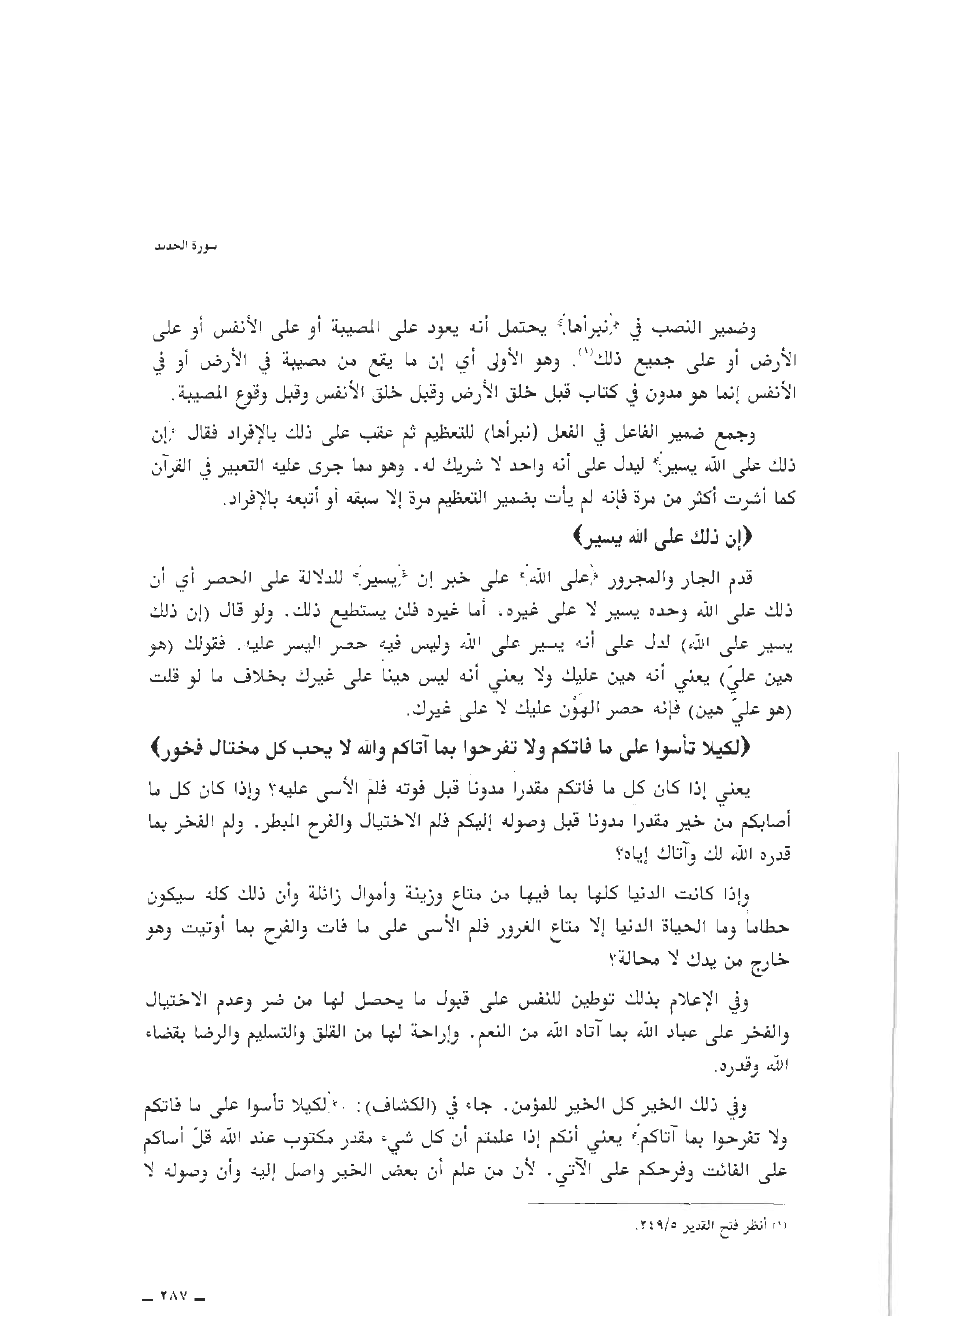 سورة الحديد
وضمير النصب في ﴿نبرأها﴾ يحتمل أنه يعود على المصيبة أو على الأنفس أو على
الأرض أو على جميع ذلك(١). وهو الأولى أي إن ما يقع من مصيبة في الأرض أو في
الأنفس إنما هو مدون في كتاب قبل خلق الأرض وقبل خلق الأنفس وقبل وقوع المصيبة.
وجمع ضمير الفاعل في الفعل (نبرأها) للتعظيم ثم عقب على ذلك بالإفراد فقال ﴿إن
ذلك على الله يسير﴾ ليدل على أنه واحد لا شريك له. وهو مما جرى عليه التعبير في القرآن
كما أشرت أكثر من مرة فإنه لم يأت بضمير التعظيم مرة إلا سبقه أو أتبعه بالإفراد.
﴿إن ذلك على الله يسير﴾
قدم الجار والمجرور ﴿على الله﴾ على خبر إن ﴿يسير﴾ للدلالة على الحصر أي أن
ذلك على الله وحده يسير لا على غيره. أما غيره فلن يستطيع ذلك. ولو قال (إن ذلك
يسير على الله) لدل على أنه يسير على الله وليس فيه حصر اليسر عليه. فقولك (هو
هين عليّ) يعني أنه هين عليك ولا يعني أنه ليس هيناً على غيرك بخلاف ما لو قلت
(هو عليّ هين) فإنه حصر الهوْن عليك لا على غيرك.
﴿لكيلا تأسوا على ما فاتكم ولا تفرحوا بما آتاكم والله لا يحب كل مختال فخور﴾
يعني إذا كان كل ما فاتكم مقدراً مدوناً قبل فوته فلم الأسى عليه؟ وإذا كان كل ما
أصابكم من خير مقدرا مدونا قبل وصوله إليكم فلم الاختيال والفرح المبطر. ولم الفخر بما
قدره الله لك وآتاك إياه؟
وإذا كانت الدنيا كلها بما فيها من متاع وزينة وأموال زائلة وأن ذلك كله سيكون
حطاماً وما الحياة الدنيا إلا متاع الغرور فلم الأسى على ما فات والفرح بما أوتيت وهو
خارج من يدك لا محالة؟
وفي الإعلام بذلك توطين للنفس على قبول ما يحصل لها من ضر وعدم الاختيال
والفخر على عباد الله بما آتاه الله من النعم. وإراحة لها من القلق والتسليم والرضا بقضاء
الله وقدره.
وفي ذلك الخير كل الخير للمؤمن. جاء في (الكشاف): «﴿لكيلا تأسوا على ما فاتكم
ولا تفرحوا بما آتاكم﴾ يعني أنكم إذا علمتم أن كل شيء مقدر مكتوب عند الله قلّ أساكم
على الفائت وفرحكم على الآتي. لأن من علم أن بعض الخير واصل إليه وأن وصوله لا
(١) أنظر فتح القدير ٢٤٩/٥.
ـ ٢٨٧ ـ